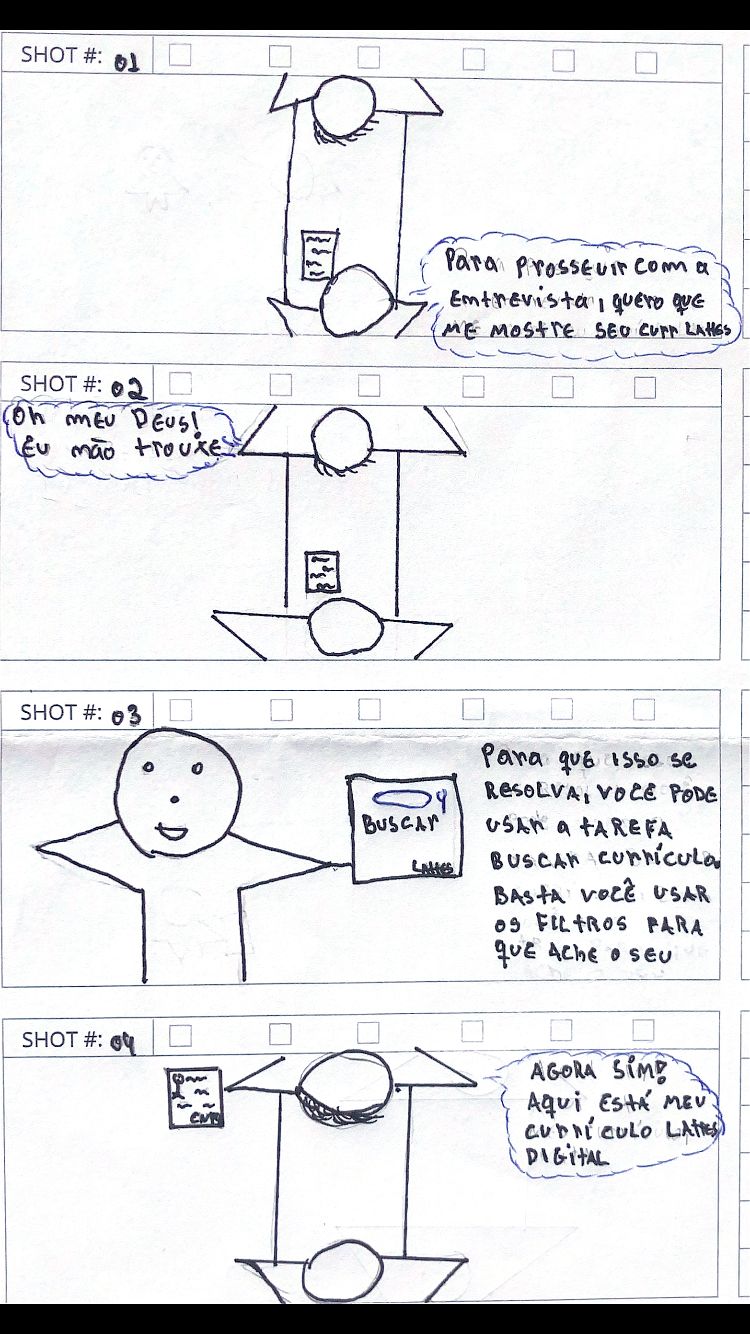 SHOT #: 01
Para Prosseuir com a
Entrevista, quero que
ME MOSTRE SEU CURR LATTES
SHOT #: 02
Oh meu Deus!
Eu não trouxe
SHOT #: 03
BUSCAR
LATTES
Para que isso se
RESOLVA, VOCÊ PODE
USAR a tAREFA
BUSCAR CURRÍCULO.
BASTA VOCÊ USAR
OS FILTROS PARA
QUE ACHE O SEU
SHOT #: 04
CURR
AGORA SIM!
AQUI ESTÁ MEU
CURRÍCULO LATTES
DIGITAL